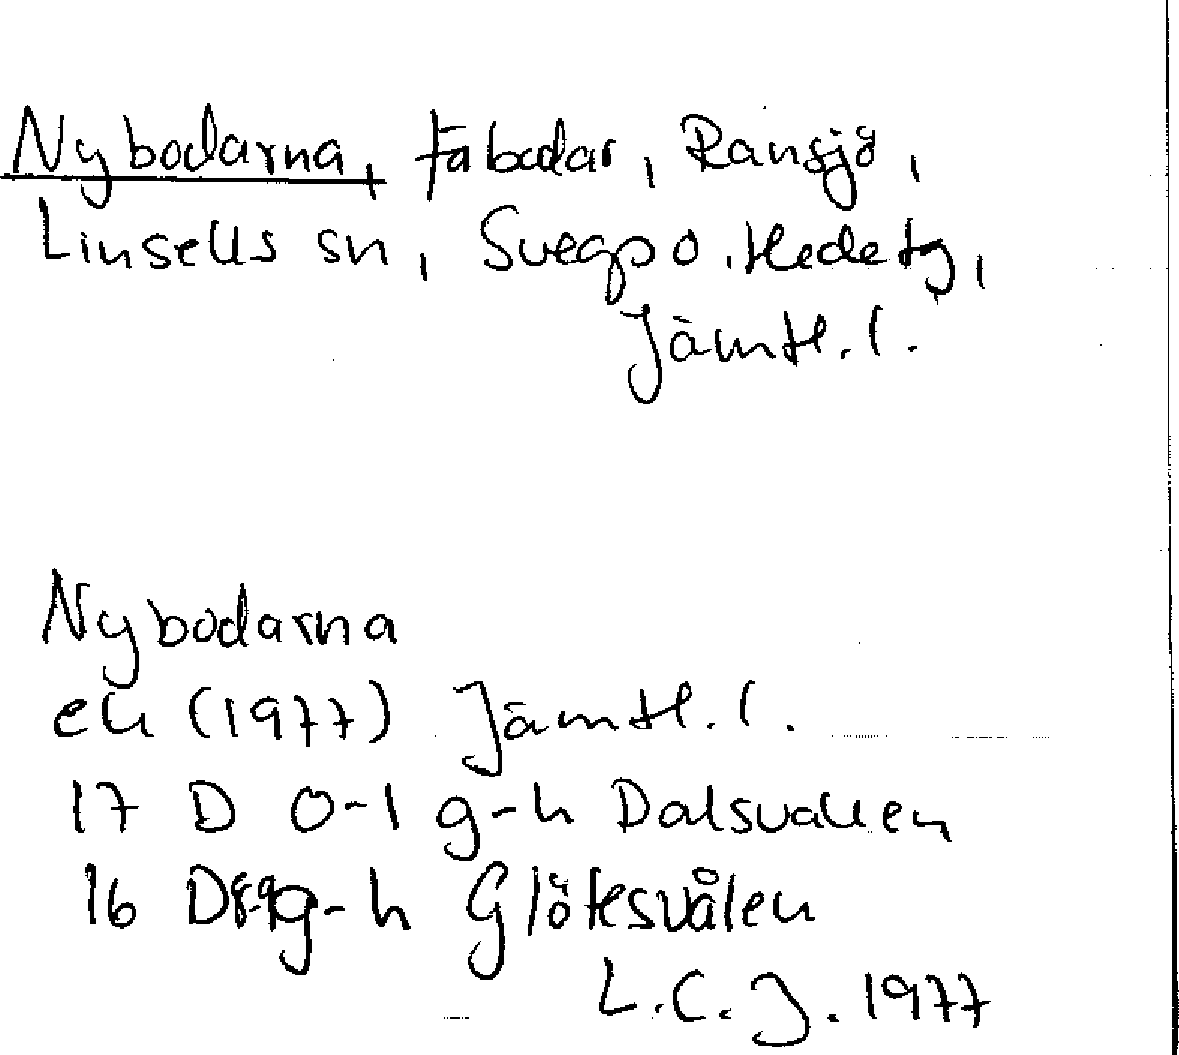 Nybodarna, fäbodar, Ransjö,
Linsells sn, Svegs o. Hede tg,
Jämtl. l.
Nybodarna
ek (1977) Jämtl. l.
17 D 0-1 g-h Dalsvallen
16 D 8-9 g-h Glötesvålen
L.C.J. 1977